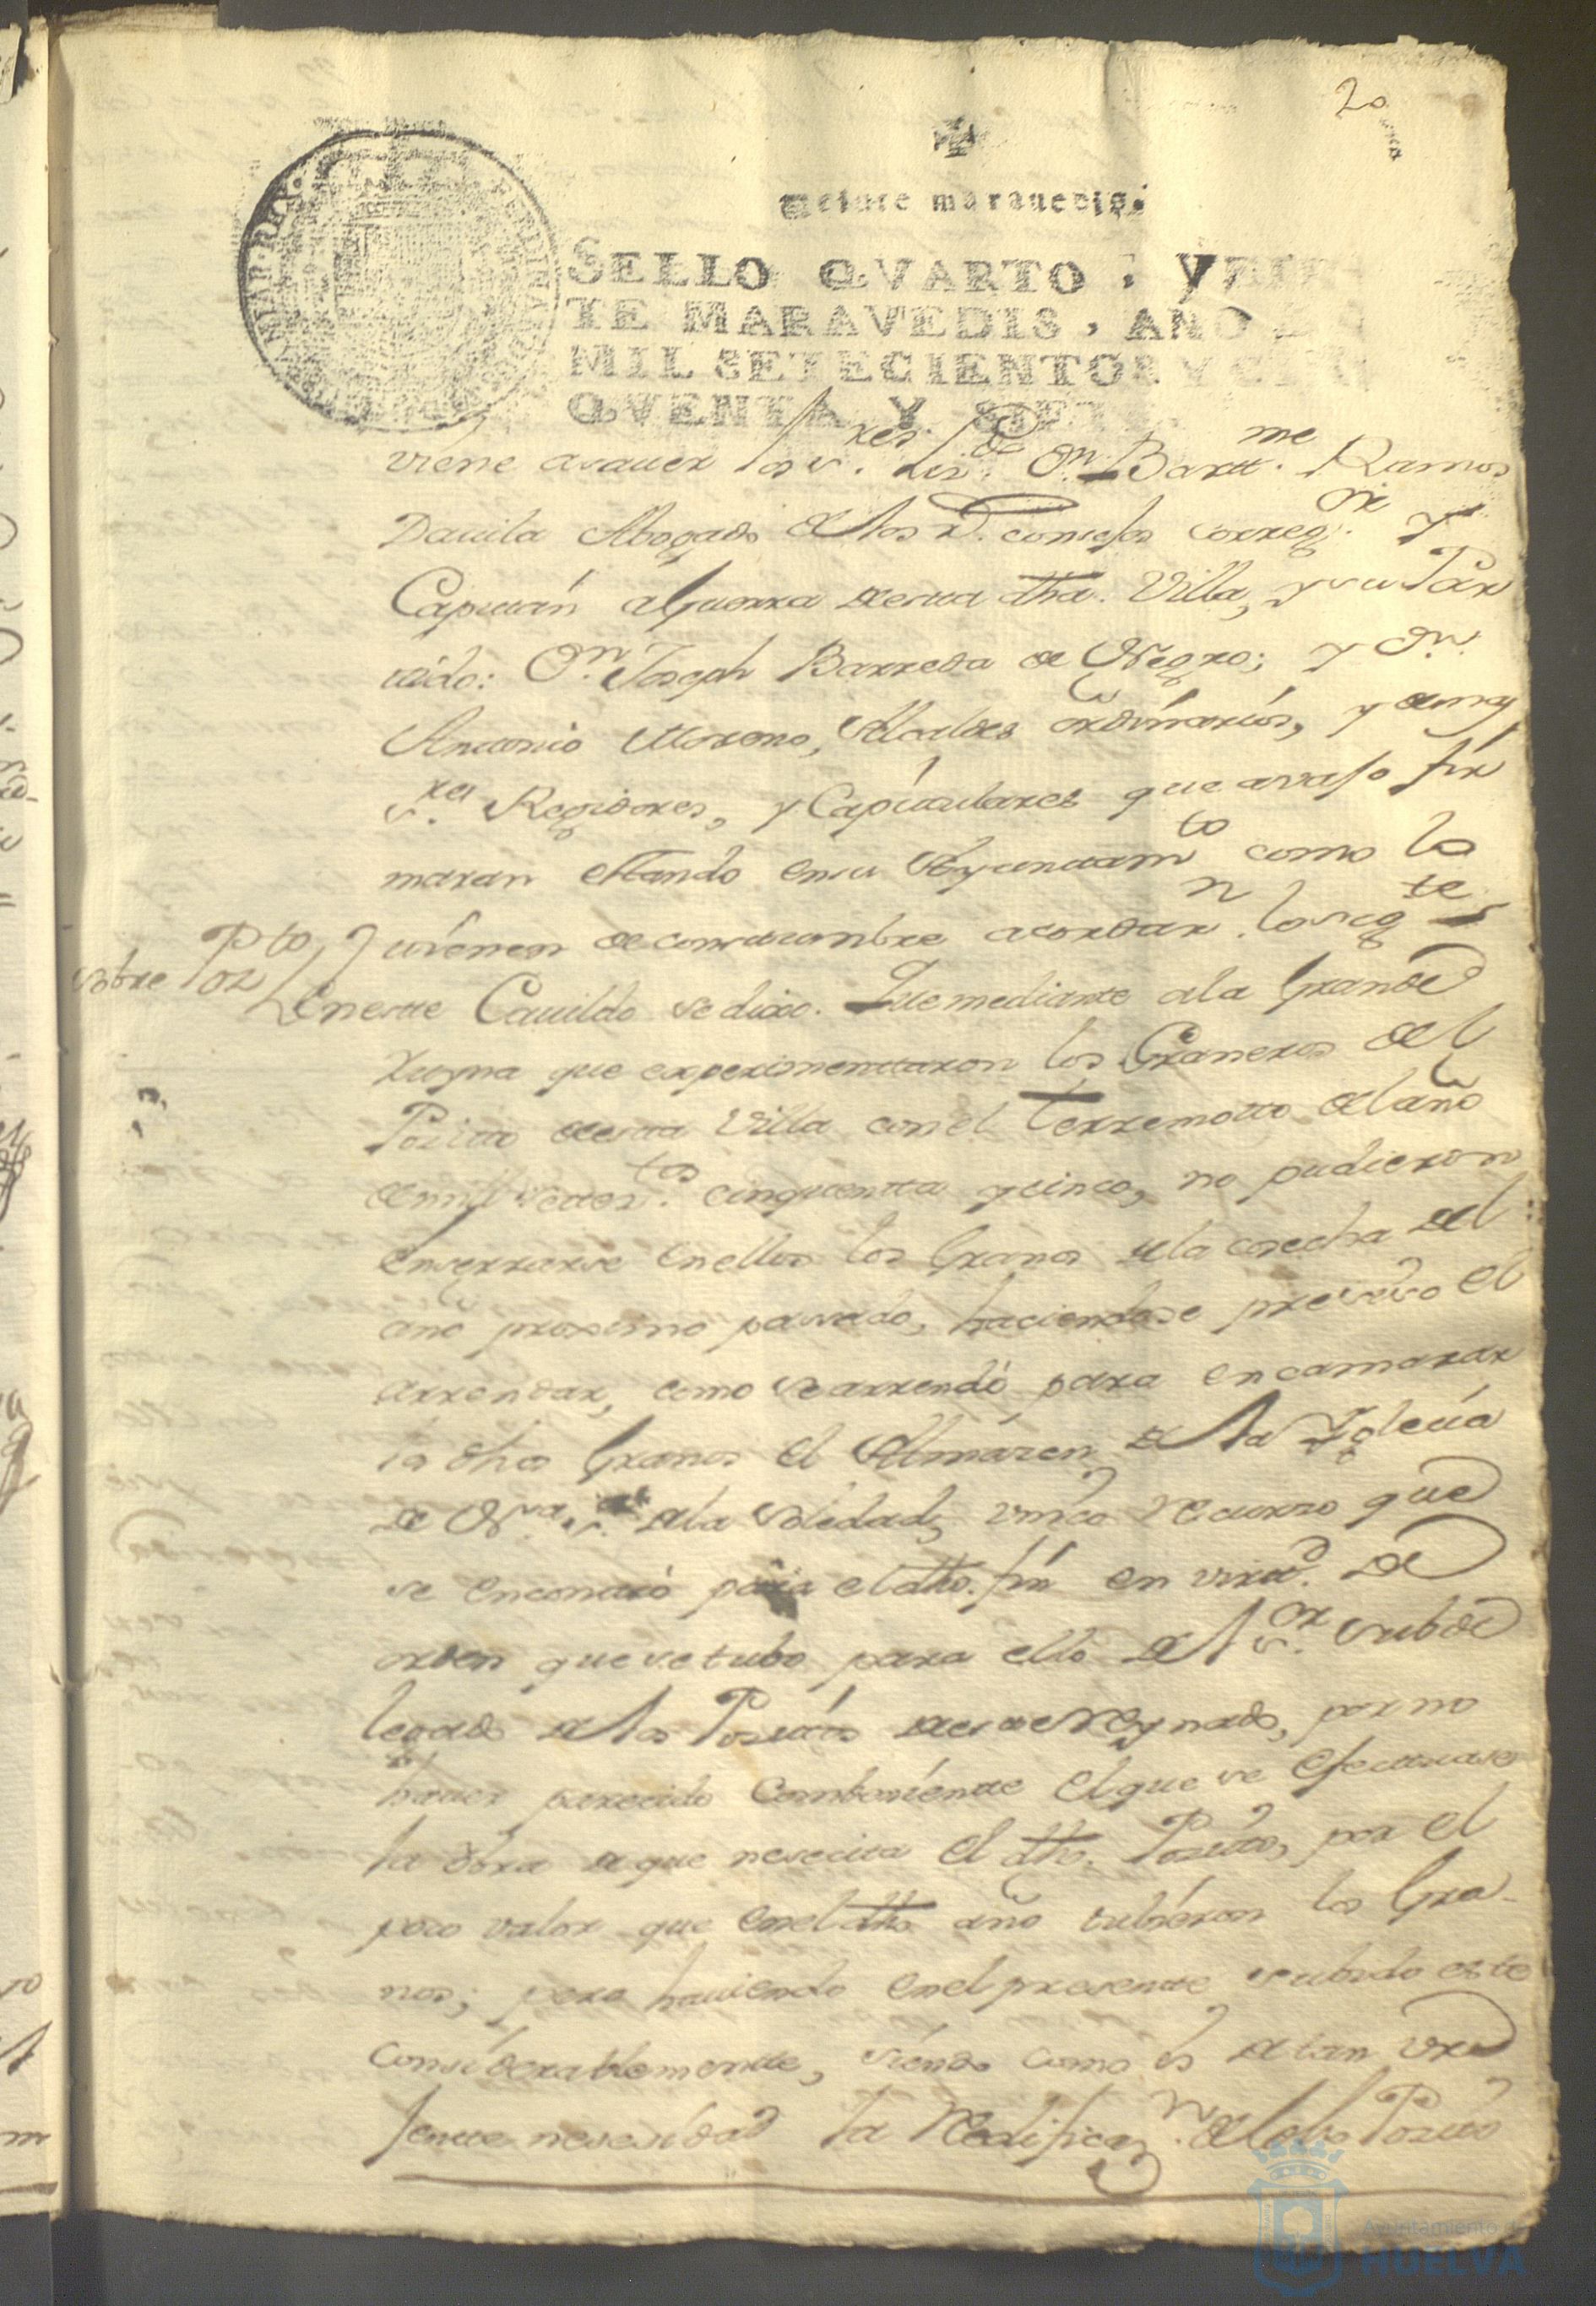 20
veinte maravedis.
SELLO QVARTO, VEIN
TE MARAVEDIS, AÑO DE
MIL SETECIENTOS Y CIN
QVENTA Y SIETE.
viene asauer los s.res Liz.do Dn. Bartt.me Ramos
Dauila Abogado de los R.s consejos correg.or y
Capittán a Guerra de esta dha. Villa, y su Par
tido: Dn. Joseph Barreda de Negro; y Dn.
Antonio Moreno, Alcaldes ordinarios, y demas
s.res Regidores, y Capitulares que auajo fir
maran estando en su Ayuntam.to como lo
tienen de constumbre acordar.n lo sig.te
Pto,
sobre Poz
En este Cauildo se dixo. Que mediante a la Grande
Ruyna que experimenttaron los Graneros del
Pozitto de esta Villa con el terremotto del año
de mil settez.tos cinquentta y cinco, no pudieron
enserrarse en ellos los Granos de la cosecha del
año proximo pasado, haciendose presiso el
arrendar, como se arrendó para encamarar
dhos Granos el Almazen de la Yglesia
de Nra. Sra. de la Soledad, vnico recurso que
se encontró para el dho. fin en virtd. de
orden que se tubo para ello del s.or subde
legado de los Positos de este Reynado, por no
hauer parecido Combeniente el que se efectuase
la obra de que nesecita el dho. Posito, por el
poco valor que en el dho año tubieron los Gra-
nos; pero hauiendo en el presente subido este
Considerablemente, siendo como es de tan vr
jente nesesidad la Redificaz.n del dho Posito
Ayuntamiento de
HUELVA